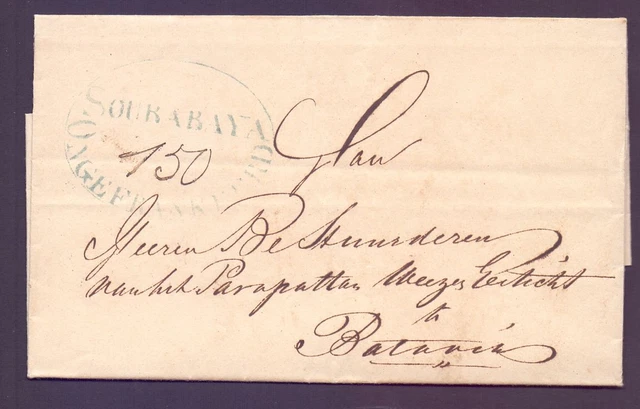 SOURABAYA
ONGEFRANKEERD
150 Aan
Heeren Bestuurderen
van het Parapattan Weezen Gesticht
te
Batavia